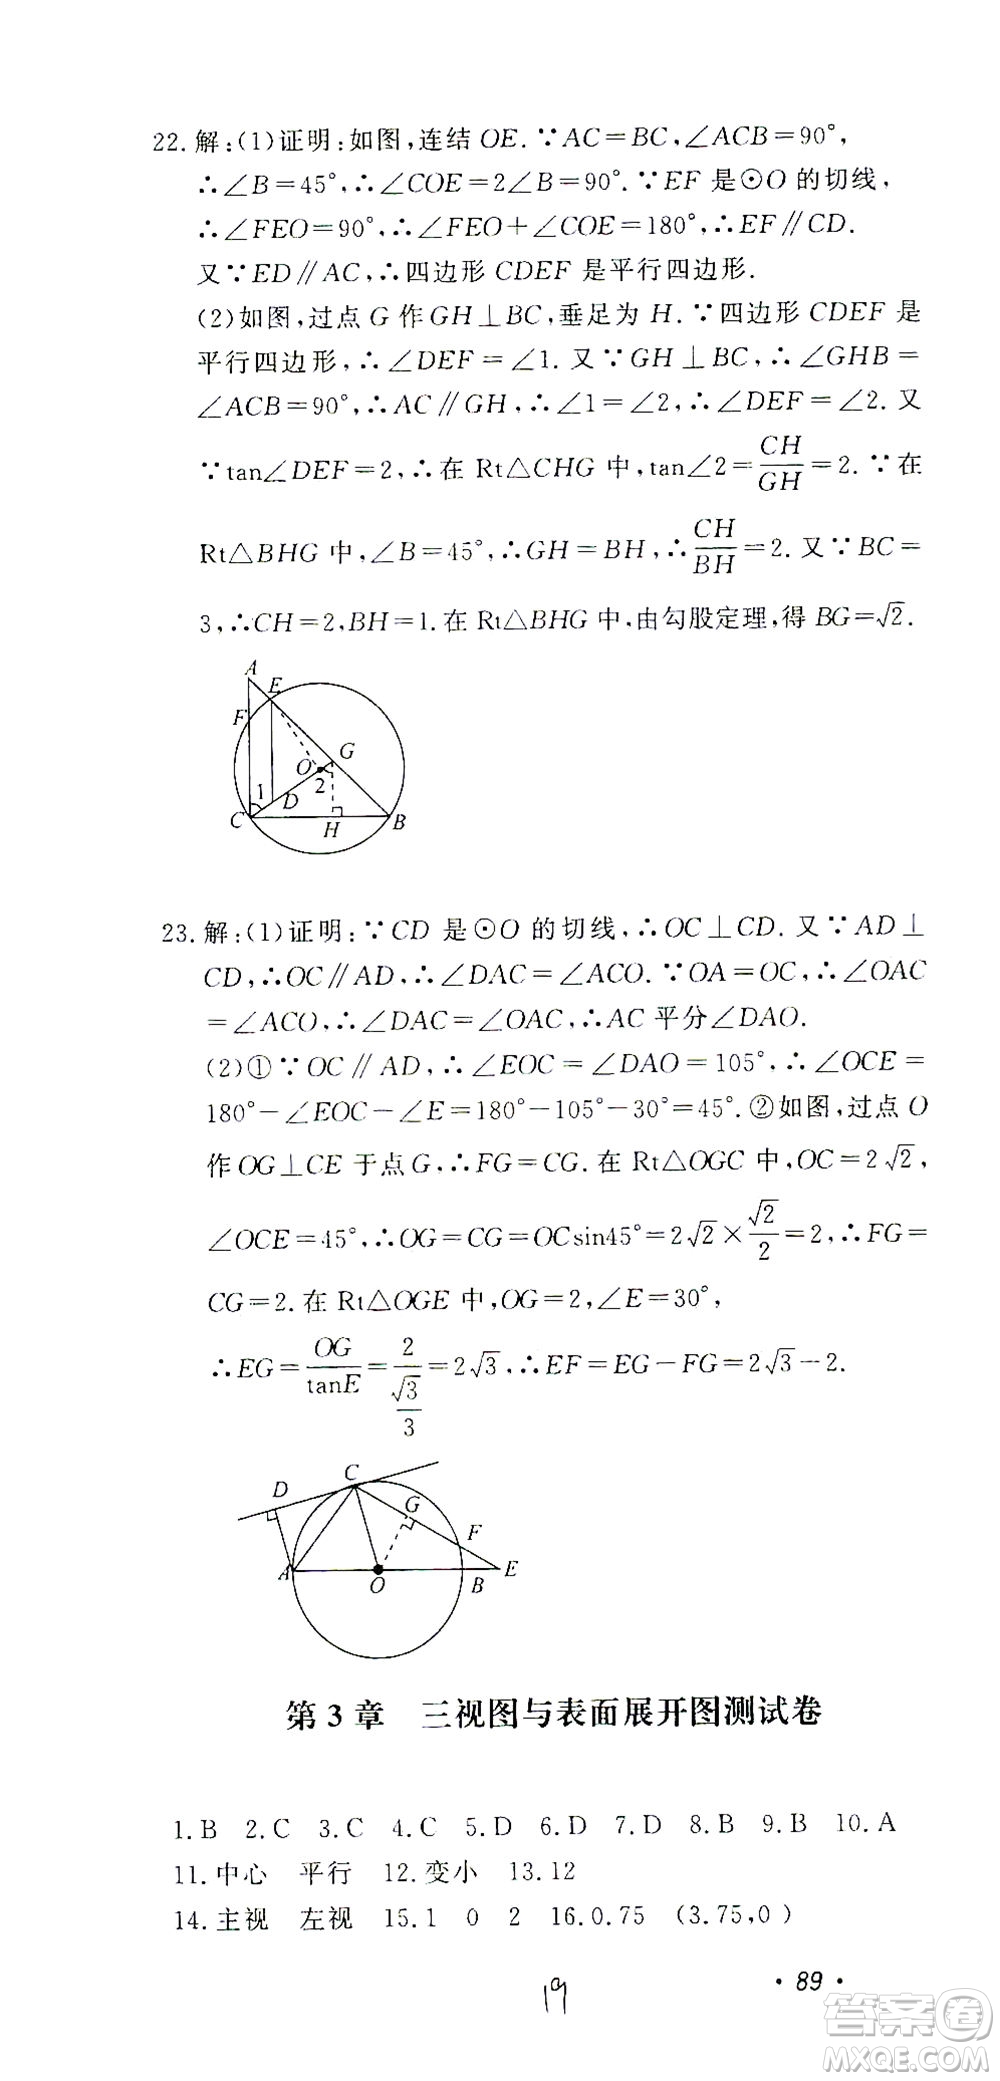 22.解:(1)证明:如图,连结 OE.∵AC=BC,∠ACB=90°,
∴∠B=45°,∴∠COE=2∠B=90°.∵EF 是⊙O 的切线,
∴∠FEO=90°,∴∠FEO+∠COE=180°,∴EF∥CD.
又∵ED∥AC,∴四边形 CDEF 是平行四边形.
(2)如图,过点 G 作 GH⊥BC,垂足为 H.∵四边形 CDEF 是
平行四边形,∴∠DEF=∠1.又∵GH⊥BC,∴∠GHB=
∠ACB=90°,∴AC∥GH,∴∠1=∠2,∴∠DEF=∠2.又
∵tan∠DEF=2,∴在 Rt△CHG 中,tan∠2=CH/GH=2.∵在
Rt△BHG 中,∠B=45°,∴GH=BH,∴CH/BH=2.又∵BC=
3,∴CH=2,BH=1.在 Rt△BHG 中,由勾股定理,得 BG=√2.
A
E
F
G
O
1
2
D
C
H
B
23.解:(1)证明:∵CD 是⊙O 的切线,∴OC⊥CD.又∵AD⊥
CD,∴OC∥AD,∴∠DAC=∠ACO.∵OA=OC,∴∠OAC
=∠ACO,∴∠DAC=∠OAC,∴AC 平分∠DAO.
(2)①∵OC∥AD,∴∠EOC=∠DAO=105°,∴∠OCE=
180°-∠EOC-∠E=180°-105°-30°=45°.②如图,过点 O
作 OG⊥CE 于点 G,∴FG=CG.在 Rt△OGC 中,OC=2√2,
∠OCE=45°,∴OG=CG=OCsin45°=2√2×√2/2=2,∴FG=
CG=2.在 Rt△OGE 中,OG=2,∠E=30°,
∴EG=OG/tanE=2/(√3/3)=2√3,∴EF=EG-FG=2√3-2.
C
D
G
F
A
O
B
E
第 3 章 三视图与表面展开图测试卷
1.B 2.C 3.C 4.C 5.D 6.D 7.D 8.B 9.B 10.A
11.中心 平行 12.变小 13.12
14.主视 左视 15.1 0 2 16.0.75 (3.75,0)
19
·89·
答案圈
MXQE.COM